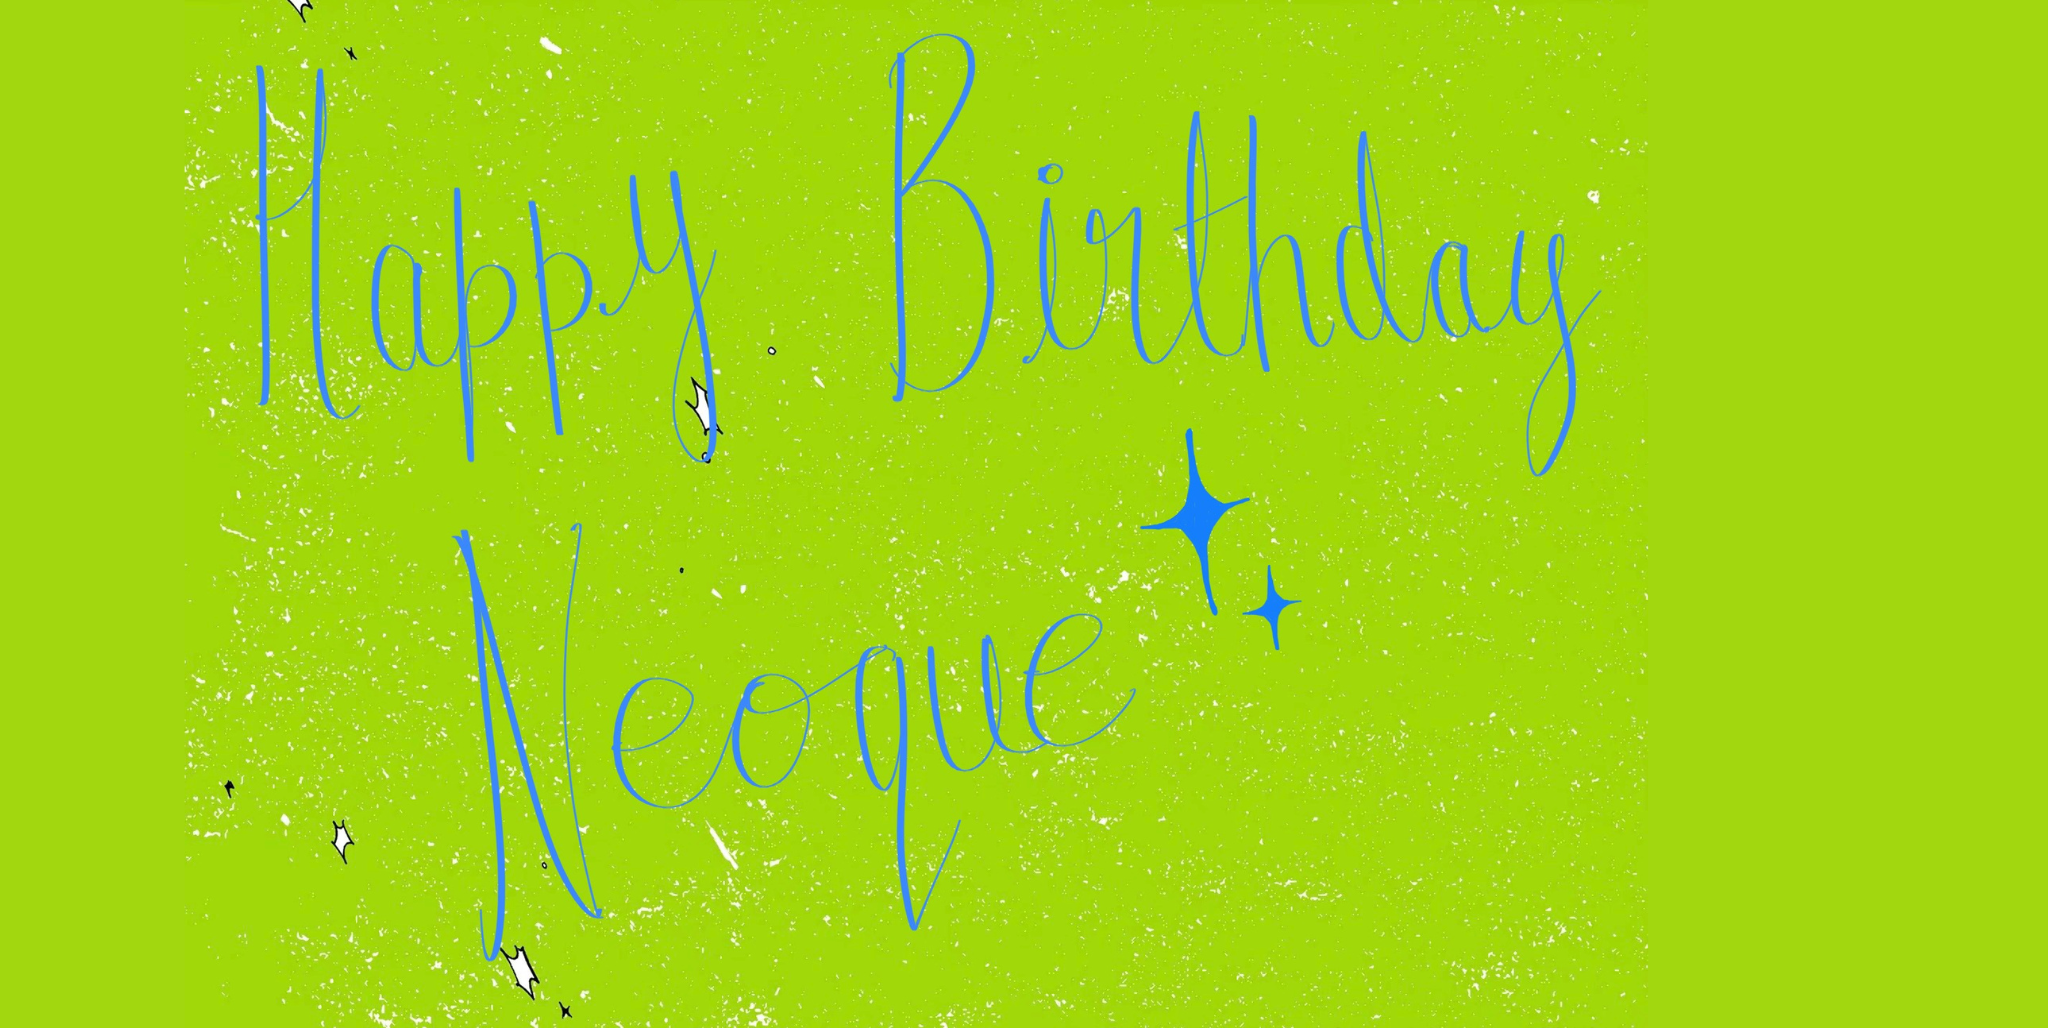 Happy Birthday
Neoque